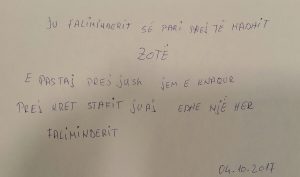 JU FALIMINDERIT SË PARI PREJ TË MADHIT
ZOTË
E PASTAJ PREJ JUSH JEM E KNAQUR
PREJ KRET STAFIT JUAJ EDHE NJË HER
FALIMINDERIT
04.10.2017